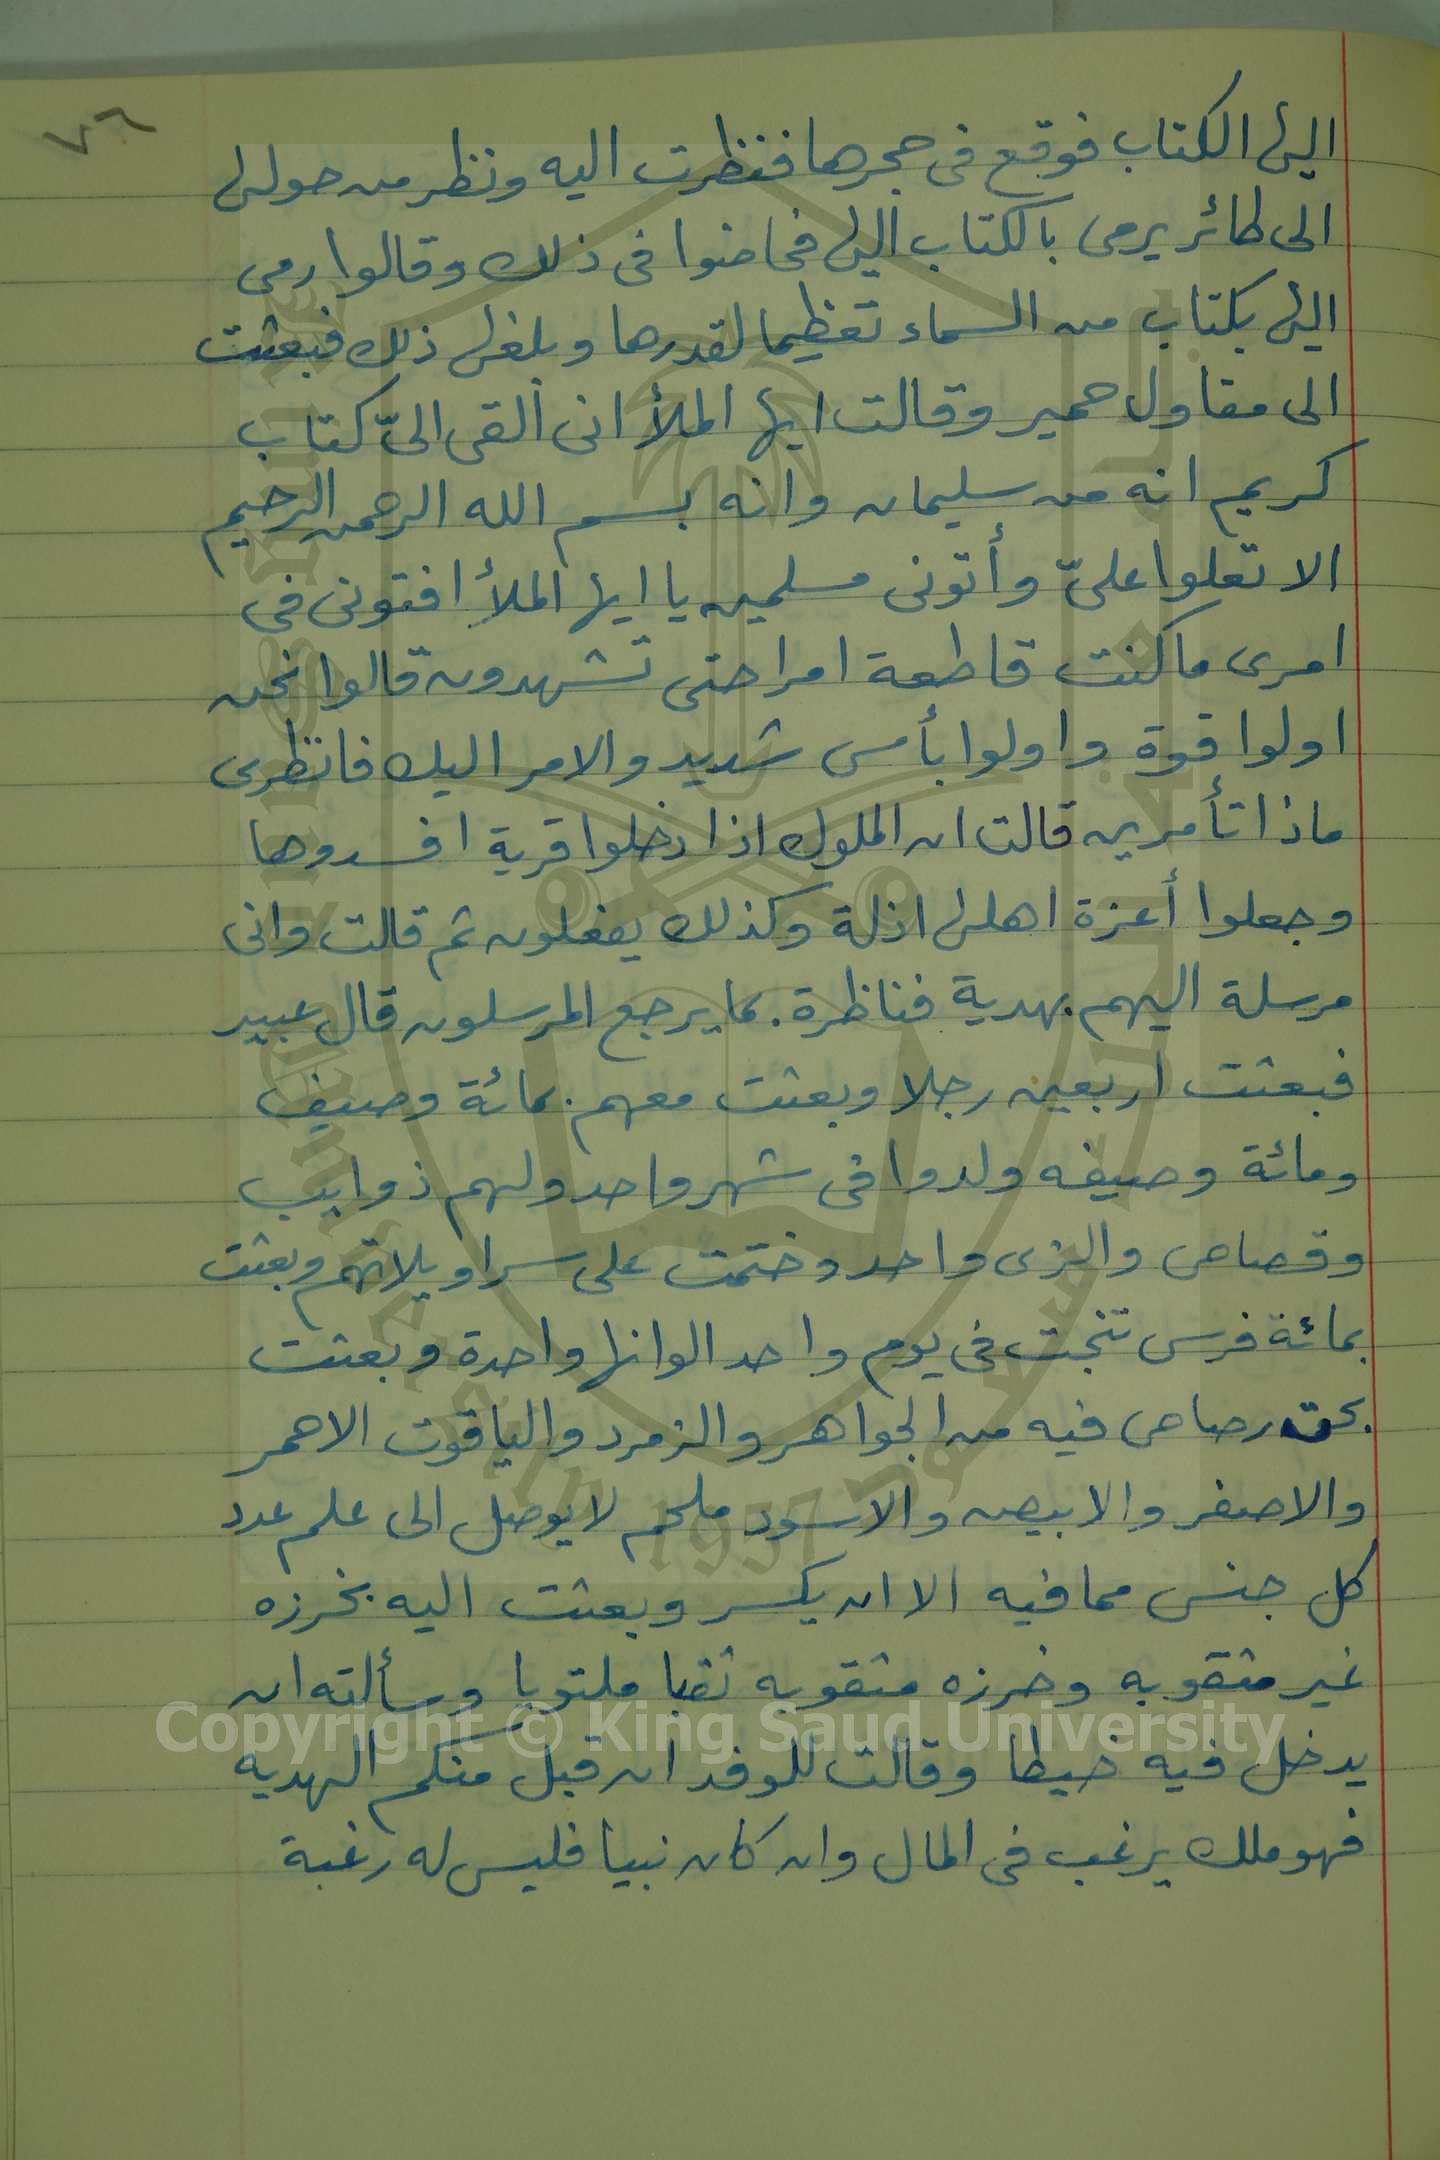 ٧٦
اليها الكتاب فوقع فى حجرها فنظرت اليه ونظر من حولها
الى طائر يرمى بالكتاب اليها فخاضوا فى ذلك وقالوا رمى
اليها بكتاب من السماء تعظيما لقدرها وبلغها ذلك فبعثت
الى مقاول حمير وقالت ايها الملأ انى ألقى الىّ كتاب
كريم انه من سليمان وانه بسم الله الرحمن الرحيم
الا تعلوا علىّ وأتونى مسلمين يا ايها الملأ افتونى فى
امرى ماكنت قاطعة امرا حتى تشهدون قالوا نحن
اولوا قوة واولوا بأس شديد والامر اليك فانظرى
ماذا تأمرين قالت ان الملوك اذا دخلوا قرية افسدوها
وجعلوا أعزة اهلها اذلة وكذلك يفعلون ثم قالت وانى
مرسلة اليهم بهدية فناظرة بما يرجع المرسلون قال عبيد
فبعثت اربعين رجلا وبعثت معهم بمائة وصيف
ومائة وصيفه ولدوا فى شهر واحد ولهم ذوايب
وقصاص والزى واحد وختمت على سراويلاتهم وبعثت
بمائة فرس تنجت فى يوم واحد الوانها واحدة وبعثت
بحق رصاص فيه من الجواهر والزمرد والياقوت الاحمر
والاصفر والابيض والاسود ملحم لايوصل الى علم عدد
كل جنس مما فيه الا ان يكسر وبعثت اليه بخرزه
غير مثقوبه وخرزه مثقوبه ثقبا ملتويا وسألته ان
يدخل فيه خيطا وقالت للوفد ان قبل منكم الهديه
فهو ملك يرغب فى المال وان كان نبيا فليس له رغبة
Copyright © King Saud University
1957